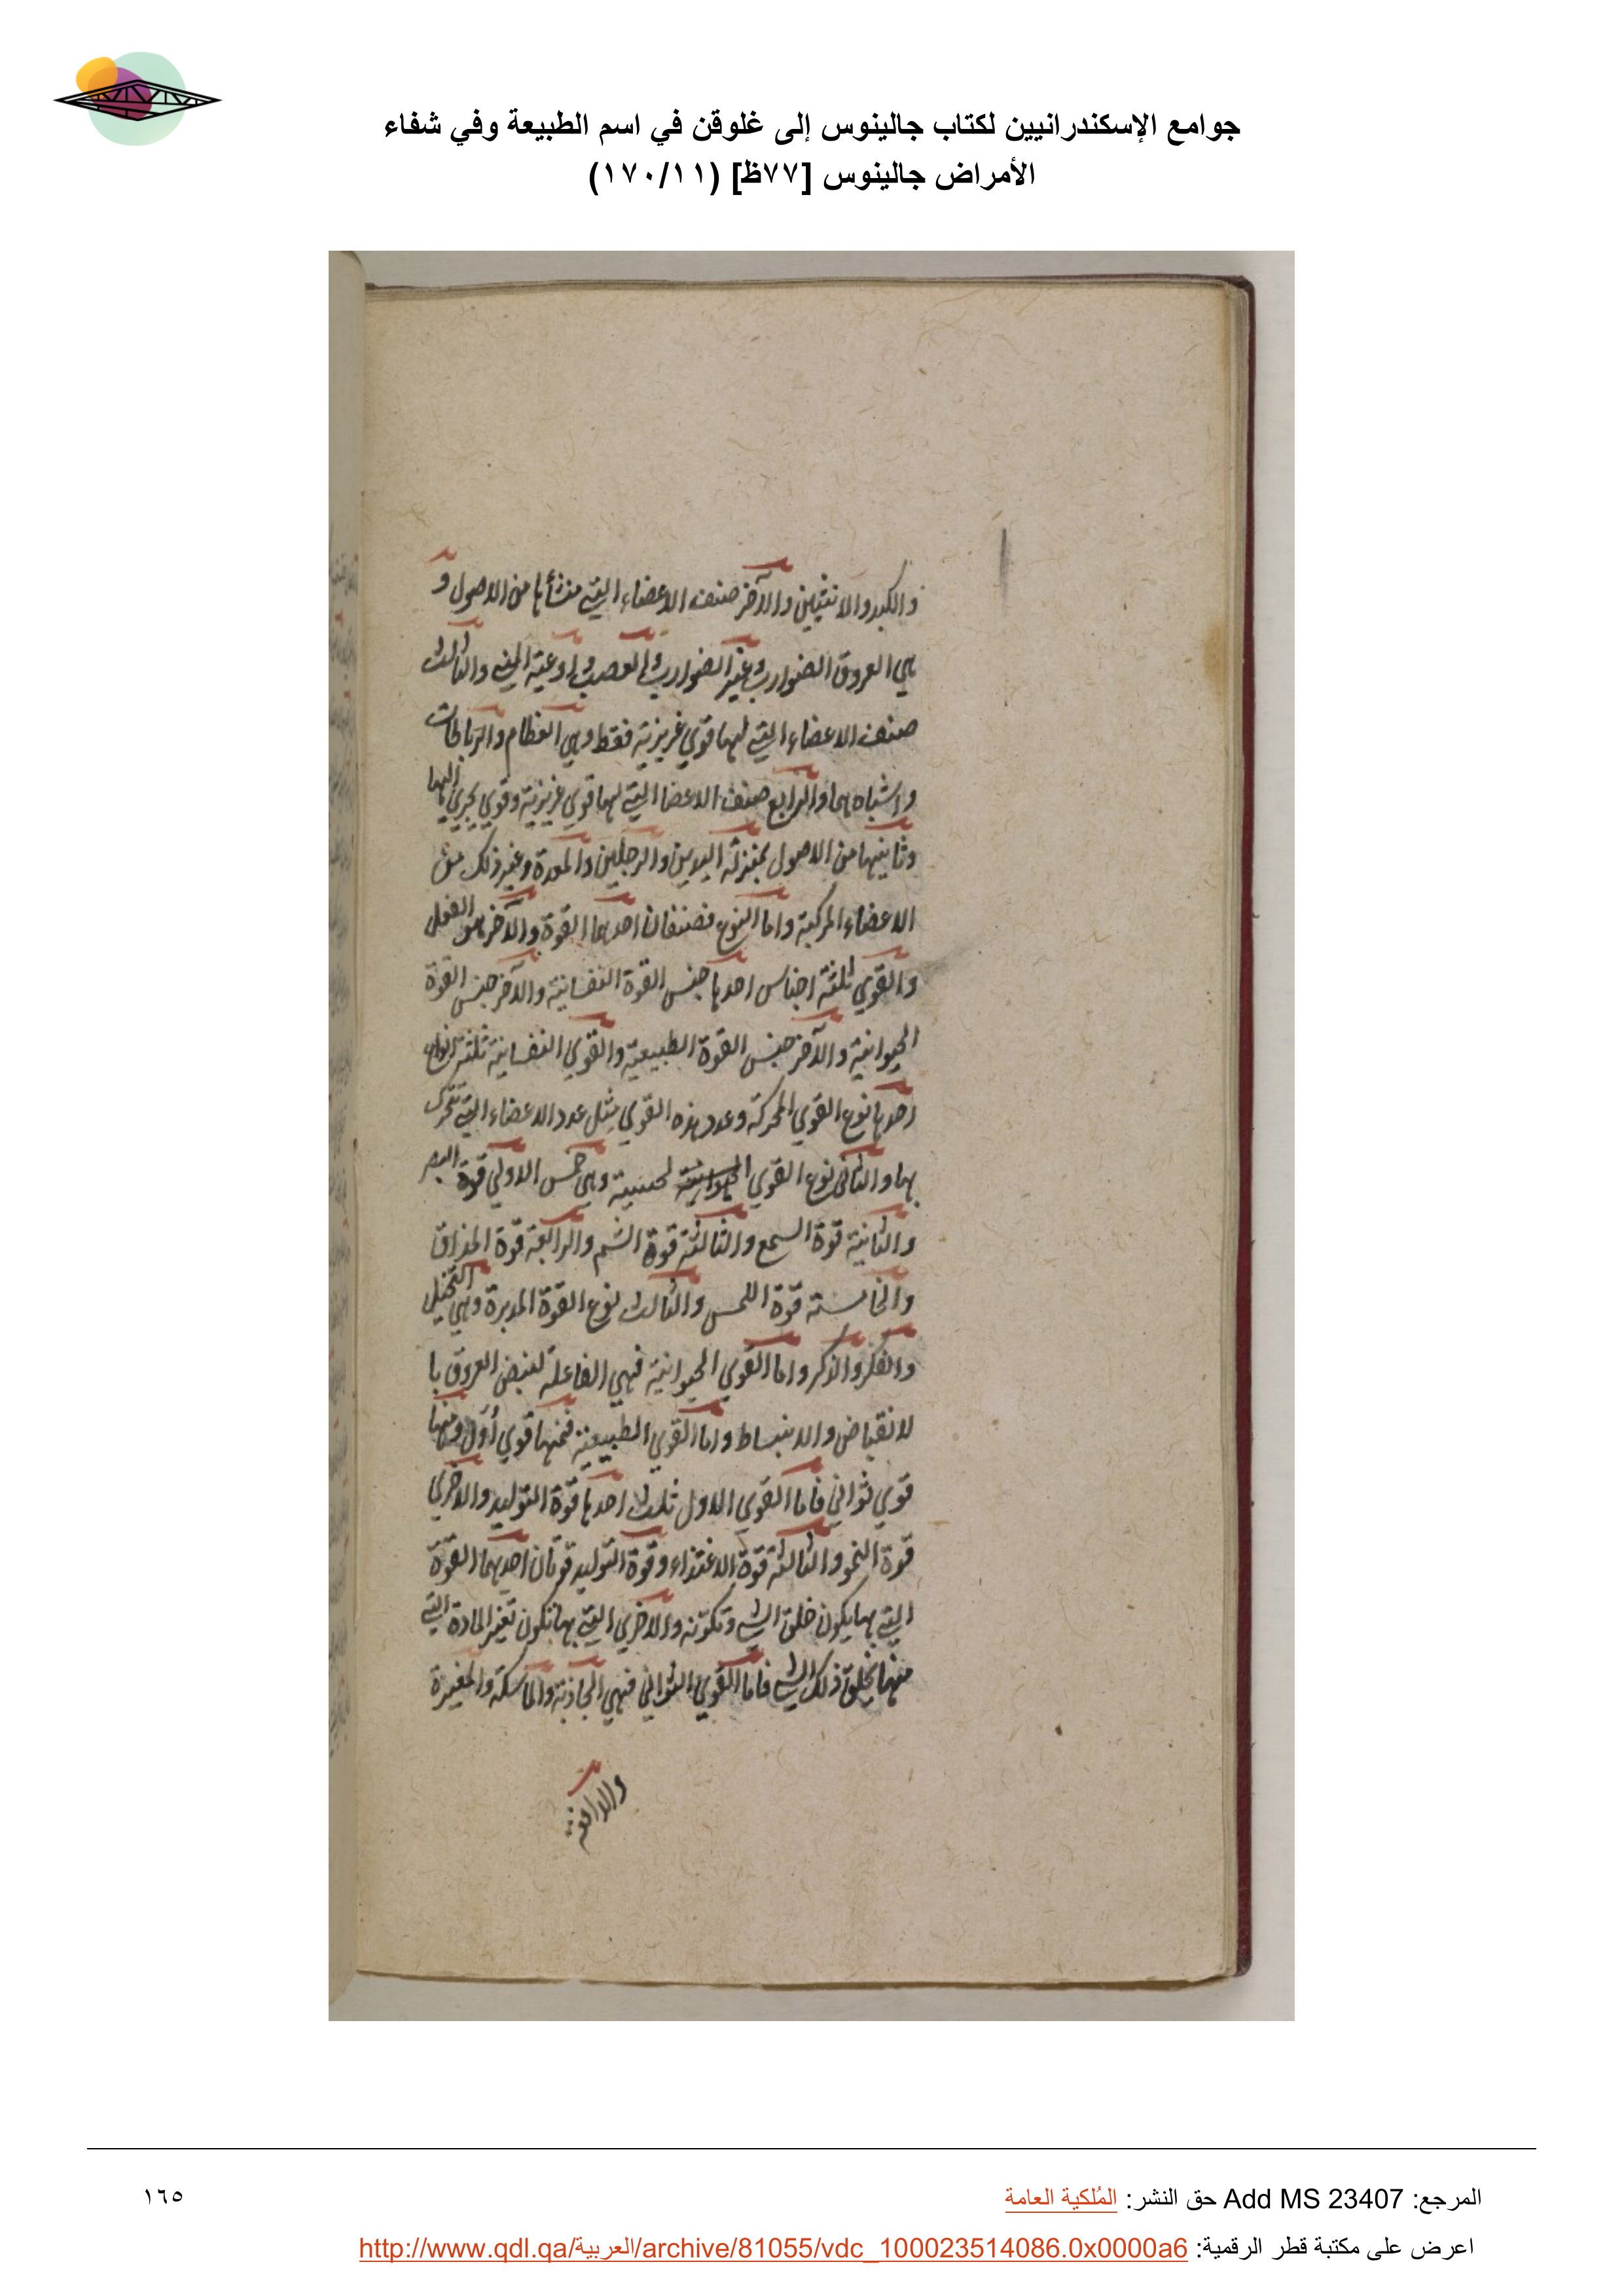 جوامع الإسكندرانيين لكتاب جالينوس إلى غلوقن في اسم الطبيعة وفي شفاء
الأمراض جالينوس [٧٧ظ] (١٧٠/١١)
والكبد والانثيين والآخر صنف الاعضاء التي منشأها من الاصول و
هي العروق الضوارب وغير الضوارب والعصب واوعية المني والثالث
صنف الاعضاء التي لها قوي غريزية فقط وهي العظام والرباطات
واشباههما والرابع صنف الاعضا التي لها قوي غريزية وقوي يجري اليها
وثاينها من الاصول بمنزلة اليدين والرجلين والمعدة وغير ذلك من
الاعضاء المركبة واما النوع فصنفان احدهما القوة والآخر هو الفعل
والقوي ثلثة اجناس احدها جنس القوة النفسانية والآخر جنس القوة
الحيوانية والآخر جنس القوة الطبيعية والقوي النفسانية ثلثة انواع
احدها نوع القوي المحركة وعدد هذه القوي مثل عدد الاعضاء التي تتحرك
بها والثاني نوع القوي الحيوانية لحسية وهي خمس الاولي قوة البصر
والثانية قوة السمع والثالثة قوة الشم والرابعة قوة المذاق
والخامسة قوة اللمس والثالث نوع القوة المدبرة وهي التخيل
والفكر والذكر واما القوي الحيوانية فهي الفاعلة لنبض العروق با
لانقباض والانبساط واما القوي الطبيعية فمنها قوي أول ومنها
قوي ثواني فاما القوي الاول ثلث احدها قوة التوليد والاخري
قوة النمو والثالثة قوة الاغتذاء وقوة التوليد قوتان احديهما القوة
التي بها يكون خلق الشي وتكونه والاخري التي بها تكون تغير المادة التي
منها يخلق ذلك الشي فاما القوي الثواني فهي الجاذبة والماسكة والمغيرة
والدافعة
المرجع: Add MS 23407 حق النشر: المُلكية العامة
١٦٥
اعرض على مكتبة قطر الرقمية: http://www.qdl.qa/العربية/archive/81055/vdc_100023514086.0x0000a6